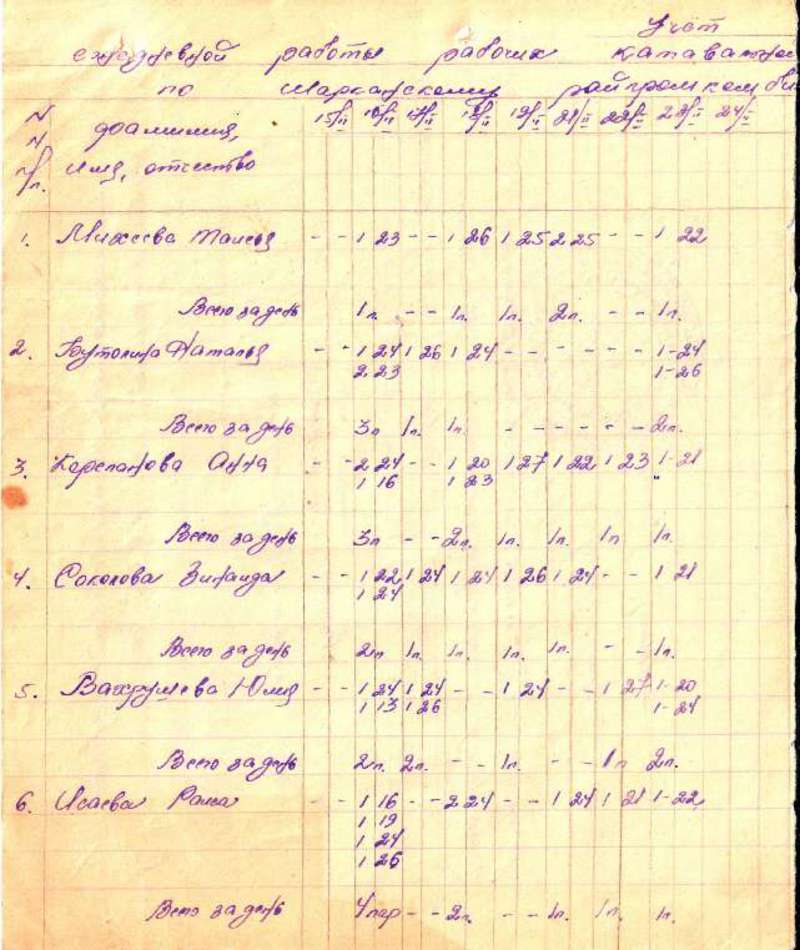 Учёт
ежедневной работы рабочих
по Шарканскому райпромком
N 15/II 16/II 17/II 18/II 19/II 21/II 22/II 23/II 24/II
N фамилия,
п/п. имя, отчество
1. Михеева Таисья - - 1 23 - - 1 26 1 25 2 25 - - 1 22
Всего за день 1п. - - 1п. 1п. 2п. - - 1п.
2. Бутолина Наталья - - 1 24 1 26 1 24 - - - - - - 1-24
2 23 1-26
Всего за день 3п 1п. 1п. - - - - - - 2п.
3. Корепанова Анна - - 2 24 - - 1 20 1 27 1 22 1 23 1-21
1 16 1 23 "
Всего за день 3п - - 2п. 1п. 1п. 1п 1п.
4. Соколова Зинаида - - 1 22 1 24 1 24 1 26 1 24 - - 1 21
1 24
Всего за день 2п 1п. 1п. 1п. 1п. - - 1п.
5. Вахрушева Юлия - - 1 24 1 24 - - 1 24 - - 1 27 1-20
1 13 1 26 1-24
Всего за день 2п. 2п. - - 1п. - - 1п 2п.
6. Исаева Раиса - - 1 16 - - 2 24 - - 1 24 1 21 1-22
1 19
1 24
1 26
Всего за день 4пар - - 2п. - - 1п. 1п. 1п.